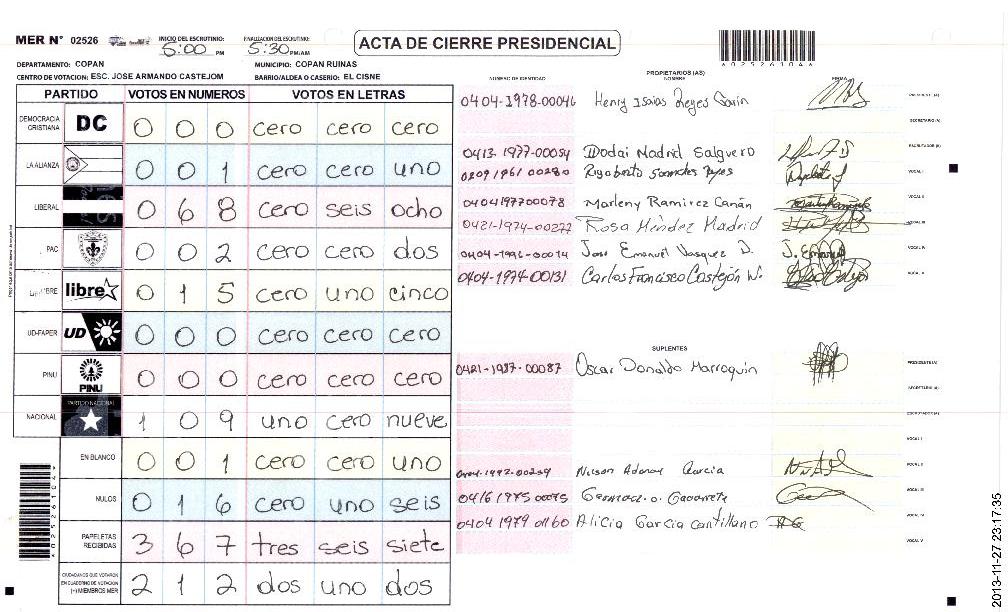 MER N° 02526
INICIO DEL ESCRUTINIO: 5:00 PM
FINALIZACION DEL ESCRUTINIO: 5:30 PM/AM
ACTA DE CIERRE PRESIDENCIAL
DEPARTAMENTO: COPAN
MUNICIPIO: COPAN RUINAS
CENTRO DE VOTACION: ESC. JOSE ARMANDO CASTEJOM
BARRIO/ALDEA O CASERIO: EL CISNE
PARTIDO VOTOS EN NUMEROS VOTOS EN LETRAS
DEMOCRACIA CRISTIANA DC 0 0 0 cero cero cero
LA ALIANZA 0 0 1 cero cero uno
LIBERAL 0 6 8 cero seis ocho
PAC 0 0 2 cero cero dos
libre 0 1 5 cero uno cinco
UD-FAPER UD 0 0 0 cero cero cero
PINU PINU 0 0 0 cero cero cero
NACIONAL PARTIDO NACIONAL 1 0 9 uno cero nueve
EN BLANCO 0 0 1 cero cero uno
NULOS 0 1 6 cero uno seis
PAPELETAS RECIBIDAS 3 6 7 tres seis siete
CIUDADANOS QUE VOTARON EN CUADERNO DE VOTACION (+) MIEMBROS MER 2 1 2 dos uno dos
NUMERO DE IDENTIDAD
PROPIETARIOS (AS)
NOMBRE
FIRMA
0404-1978-00046 Henry Isaias Reyes
PRESIDENTE (A)
SECRETARIO (A)
0413-1977-00054 Dodai Madrid Salguero ESCRUTADOR (A)
0209 1961 00280 Rigoberto Reyes VOCAL I
0404197700078 Marleny Ramirez VOCAL II
0421-1974-00277 Rosa Méndez Madrid VOCAL III
Jose Emanuel Vasquez D. J. Emanuel VOCAL IV
0404-1974-00131 Carlos Francisco Castejón VOCAL V
SUPLENTES
0421-1987-00087 Oscar Donaldo Marroquin PRESIDENTE (A)
SECRETARIO (A)
ESCRUTADOR (A)
VOCAL I
Garcia VOCAL II
0416 1975 VOCAL III
0404 1979 01160 Alicia Garcia Cantillano VOCAL IV
VOCAL V
2013-11-27 23:17:35